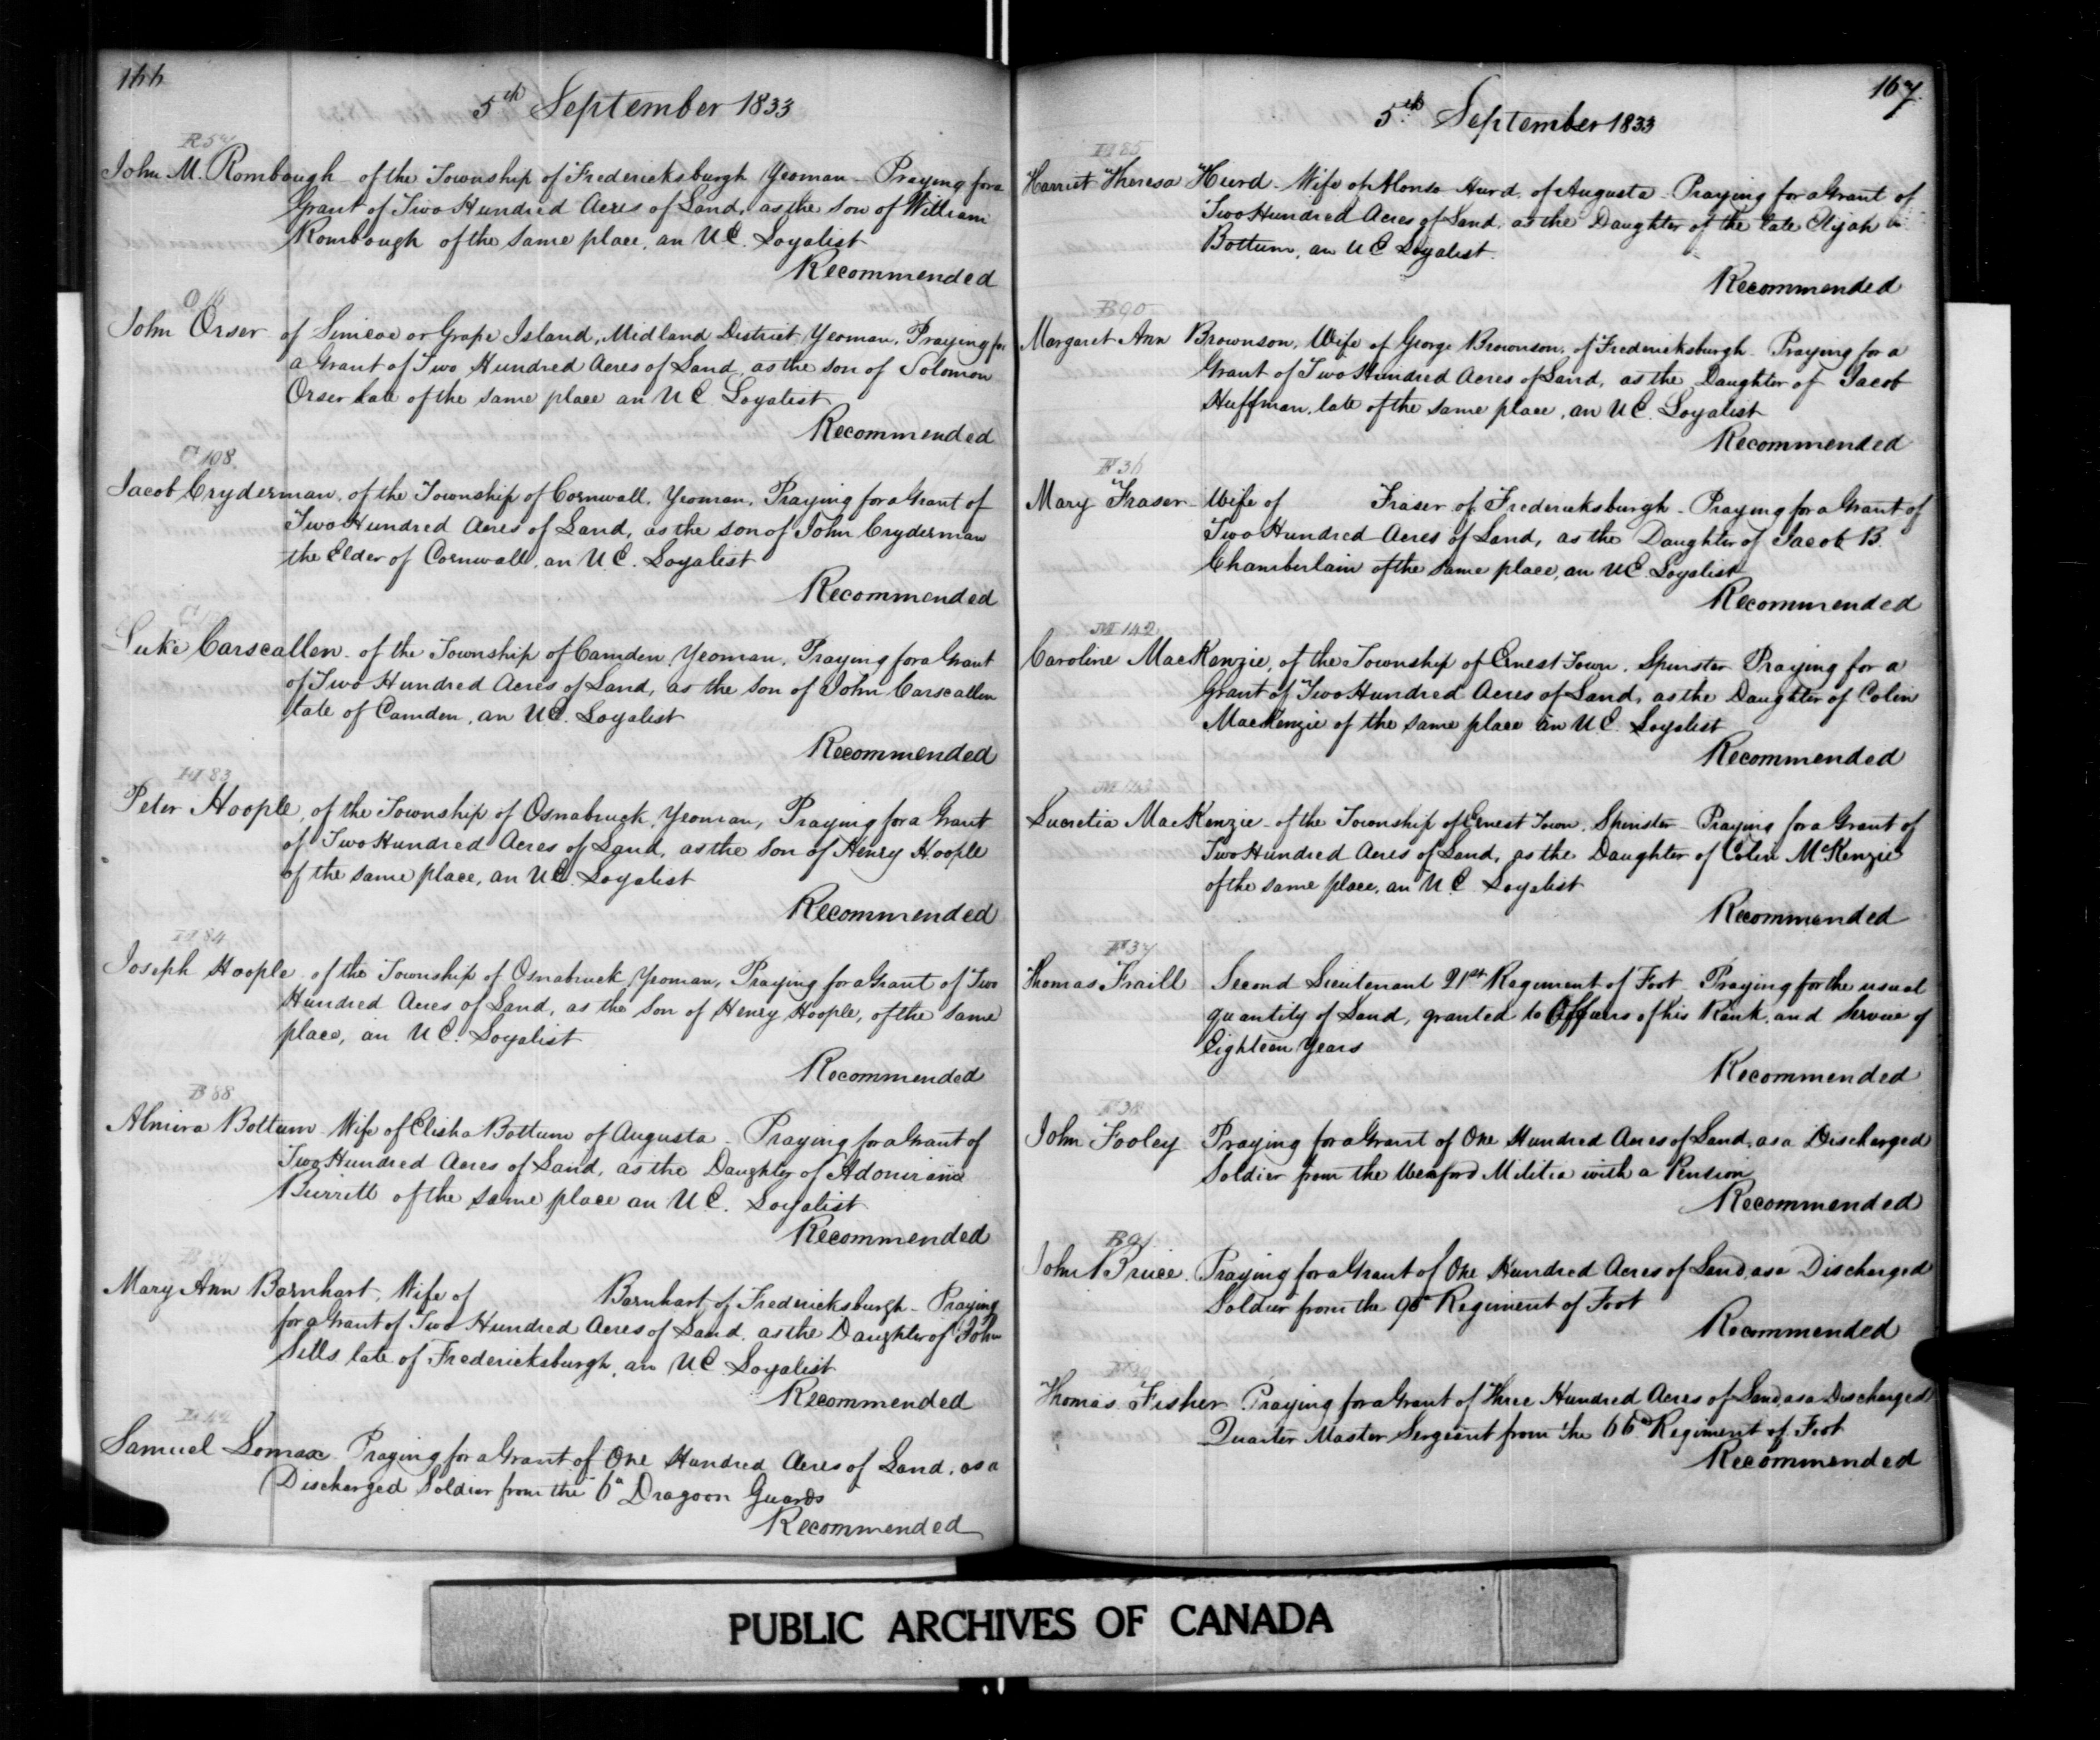 166
5th September 1833
R 54
John M. Rombough of the Township of Fredericksburgh Yeoman - Praying for a
Grant of Two Hundred Acres of Land, as the Son of William
Rombough of the same place, an U.E. Loyalist
Recommended
O 16
John Orser of Simcoe or Grape Island, Midland District, Yeoman, Praying for
a Grant of Two Hundred Acres of Land, as the son of Solomon
Orser late of the same place an U E Loyalist
Recommended
C 108
Jacob Cryderman, of the Township of Cornwall, Yeoman, Praying for a Grant of
Two Hundred Acres of Land, as the son of John Cryderman
the Elder of Cornwall, an U.E. Loyalist
Recommended
Luke Carscallen of the Township of Camden, Yeoman, Praying for a Grant
of Two Hundred Acres of Land, as the Son of John Carscallen
late of Camden, an UE. Loyalist
Recommended
H 83
Peter Hoople, of the Township of Osnabruck, Yeoman, Praying for a Grant
of Two Hundred Acres of Land, as the Son of Henry Hoople
of the same place, an UE. Loyalist
Recommended
H 84
Joseph Hoople of the Township of Osnabruck, Yeoman, Praying for a Grant of Two
Hundred Acres of Land, as the Son of Henry Hoople, of the same
place, an U E. Loyalist
Recommended
B 88
Almira Bottum Wife of Elisha Bottum of Augusta - Praying for a Grant of
Two Hundred Acres of Land, as the Daughter of Adoniram
Burritt of the same place an U.E. Loyalist
Recommended
B 89
Mary Ann Barnhart, Wife of Barnhart, of Fredericksburgh - Praying
for a Grant of Two Hundred Acres of Land, as the Daughter of John
Sills late of Fredericksburgh, an U.E. Loyalist
Recommended
Samuel Lomax. Praying for a Grant of One Hundred Acres of Land, as a
Discharged Soldier from the 6th Dragoon Guards
Recommended
167.
5th September 1833
H 85
Harriet Theresa Hurd - Wife of Alonso Hurd, of Augusta - Praying for a Grant of
Two Hundred Acres of Land, as the Daughter of the late Elijah
Bottum, an U E Loyalist.
Recommended
B 90
Margaret Ann Brownson, Wife of George Brownson, of Fredericksburgh - Praying for a
Grant of Two Hundred Acres of Land, as the Daughter of Jacob
Huffman, late of the same place, an U.E. Loyalist
Recommended
F 36
Mary Fraser - Wife of Fraser of Fredericksburgh - Praying for a Grant of
Two Hundred Acres of Land, as the Daughter of Jacob B.
Chamberlain of the same place, an UE. Loyalist
Recommended
M 142
Caroline MacKenzie, of the Township of Ernest Town, Spinster Praying for a
Grant of Two Hundred Acres of Land, as the Daughter of Colin
MacKenzie of the same place an U E. Loyalist
Recommended
M 143
Lucretia MacKenzie - of the Township of Ernest Town, Spinster - Praying for a Grant of
Two Hundred Acres of Land, as the Daughter of Colin McKenzie
of the same place, an U.E. Loyalist
Recommended
F 37
Thomas Fraill Second Lieutenant 21st Regiment of Foot - Praying for the usual
quantity of Land, granted to Officers of his Rank, and Service of
Eighteen Years
Recommended
F 38
John Fooley Praying for a Grant of One Hundred Acres of Land, as a Discharged
Soldier from the Wexford Militia with a Pension
Recommended
B 91
John Bruce. Praying for a Grant of One Hundred Acres of Land, as a Discharged
Soldier from the 90th Regiment of Foot
Recommended
F 39
Thomas Fisher Praying for a Grant of Three Hundred Acres of Land, as a Discharged
Quarter Master Sergeant from the 66th Regiment of Foot
Recommended
PUBLIC ARCHIVES OF CANADA